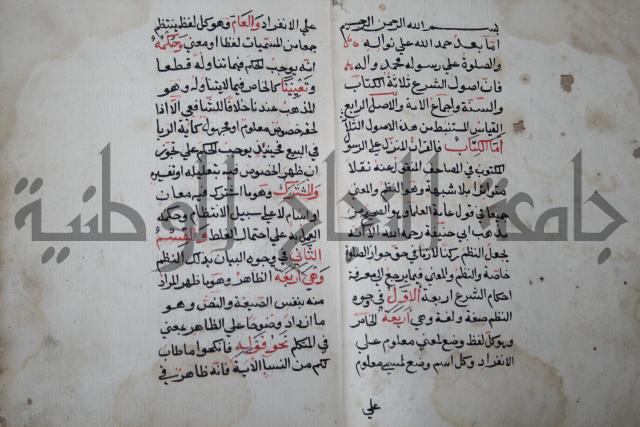 بسم الله الرحمن الرحيم
اما بعد حمد الله علي نواله
والصلوة علي رسوله محمد وآله
فان اصول الشرع ثلاثة الكتاب
والسنة واجماع الامة والاصل الرابع
القياس المستنبط من هذه الاصول الثلاثة
اما الكتاب فالقرآن المنزل علي الرسول
المكتوب في المصاحف المنقول عنه نقلا
متواترا بلا شبهة وهو النظم والمعني
جميعا في قول عامة العلماء وهو الصحيح من
مذهب ابي حنيفة رحمه الله الا انه لم
يجعل النظم ركنا لازما في حق جواز الصلوة
خاصة والنظم والمعني فيما يرجع الي معرفة
احكام الشرع اربعة الاول في وجوه
النظم صيغة ولغة وهي اربعة الخاص
وهو كل لفظ وضع لمعني معلوم علي
الانفراد وكل اسم وضع لمسمي معلوم
علي
علي الانفراد والعام وهو كل لفظ ينتظم
جمعا من المسميات لفظا او معني وحكمه
انه يوجب الحكم فيما يتناوله قطعا
ويقينا كالخاص فيما يتناوله وهو
المذهب عندنا خلافا للشافعي الا اذا
لحقه خصوص معلوم او مجهول كآية الربا
في البيع فحينئذ يوجب الحكم علي تجوز
ان يظهر الخصوص فيه بتعليله او تفسيره
والمشترك وهو ما اشترك فيه معان
او اسام لا علي سبيل الانتظام وحكمه
العمل به علي احتمال الغلط والقسم
الثاني في وجوه البيان بذلك النظم
وهي اربعة الظاهر وهو ما ظهر المراد
منه بنفس الصيغة والنص وهو
ما ازداد وضوحا علي الظاهر بمعني
في المتكلم نحو قوله فانكحوا ما طاب
لكم من النسا الاية فانه ظاهر في
جامعة النجاح الوطنية